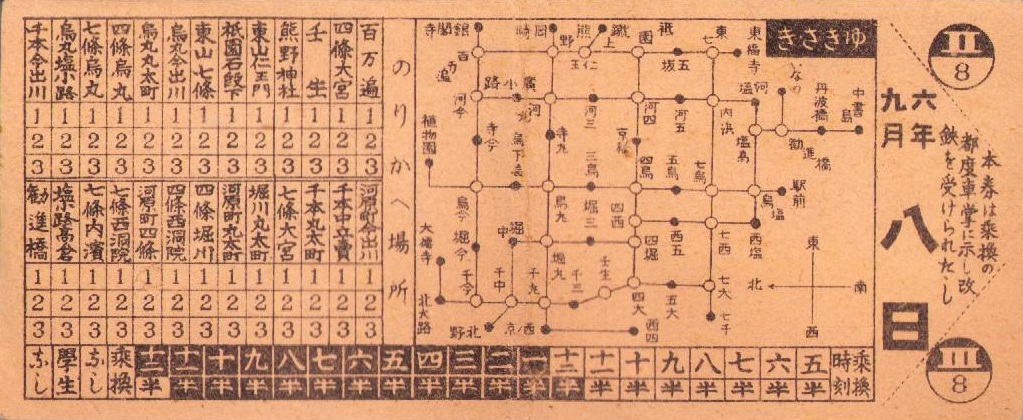 II
8
六年
九月
八日
本券は乗換の
都度車掌に示し改
鋏を受けられたし
III
8
ゆきさき
銀閣寺
百万遍
熊野
祇園
東福寺
七
東
五坂
仁王
上
河今
河
河三
河四
河五
内浜
塩高
いなり
丹波橋
中書島
勧進橋
植物園
寺今
寺九
京極
烏下
三烏
四烏
五烏
七烏
駅前
烏塩
烏今
烏九
堀三
四西
西五
七西
西塩
大徳寺
堀今
中堀
堀九
四堀
千今
千中
千九
千三
壬生
四大
五大
七大
七千
北大路
北野
西四
東
西
南
北
のりかへ場所
百万遍
四條大宮
壬生
熊野神社
東山仁王門
祇園石段下
東山七條
烏丸今出川
烏丸丸太町
四條烏丸
七條烏丸
烏丸塩小路
千本今出川
1 1 1 1 1 1 1 1 1 1 1 1 1
2 2 2 2 2 2 2 2 2 2 2 2 2
3 3 3 3 3 3 3 3 3 3 3 3 3
河原町今出川
千本中立賣
千本丸太町
七條大宮
堀川丸太町
河原町丸太町
四條堀川
四條西洞院
河原町四條
七條西洞院
七條内濱
塩小路高倉
勧進橋
1 1 1 1 1 1 1 1 1 1 1 1 1
2 2 2 2 2 2 2 2 2 2 2 2 2
3 3 3 3 3 3 3 3 3 3 3 3 3
乗換時刻
五 六 七 八 九 十 十一 十二 一 二 三 四 五 六 七 八 九 十 十一 十二
半 半 半 半 半 半 半 半 半 半 半 半 半 半 半 半 半 半 半 半
乗換
なし
學生
なし